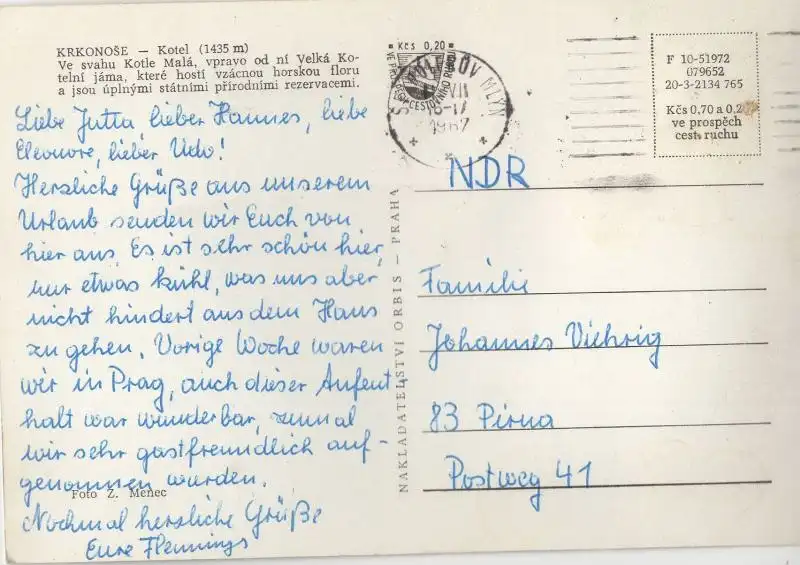 KRKONOŠE — Kotel (1435 m)
Ve svahu Kotle Malá, vpravo od ní Velká Ko-
telní jáma, které hostí vzácnou horskou floru
a jsou úplnými státními přírodními rezervacemi.
Liebe Jutta, lieber Hannes, liebe
Eleonore, lieber Udo!
Herzliche Grüße aus unserem
Urlaub senden wir Euch von
hier aus. Es ist sehr schön hier,
nur etwas kühl, was uns aber
nicht hindert aus dem Haus
zu gehen. Vorige Woche waren
wir in Prag, auch dieser Aufent-
halt war wunderbar, zumal
wir sehr gastfreundlich auf-
genommen wurden.
Foto Z. Menec
Nochmal herzliche Grüße
Eure Flennings
NAKLADATELSTVÍ ORBIS — PRAHA
Kčs 0,20
VE PROSPĚCH CESTOVNÍHO RUCHU
MLÝN
VII
1967
F 10-51972
079652
20-3-2134 765
Kčs 0,70 a 0,2
ve prospěch
cest. ruchu
NDR
Familie
Johannes Viehrig
83 Pirna
Postweg 41